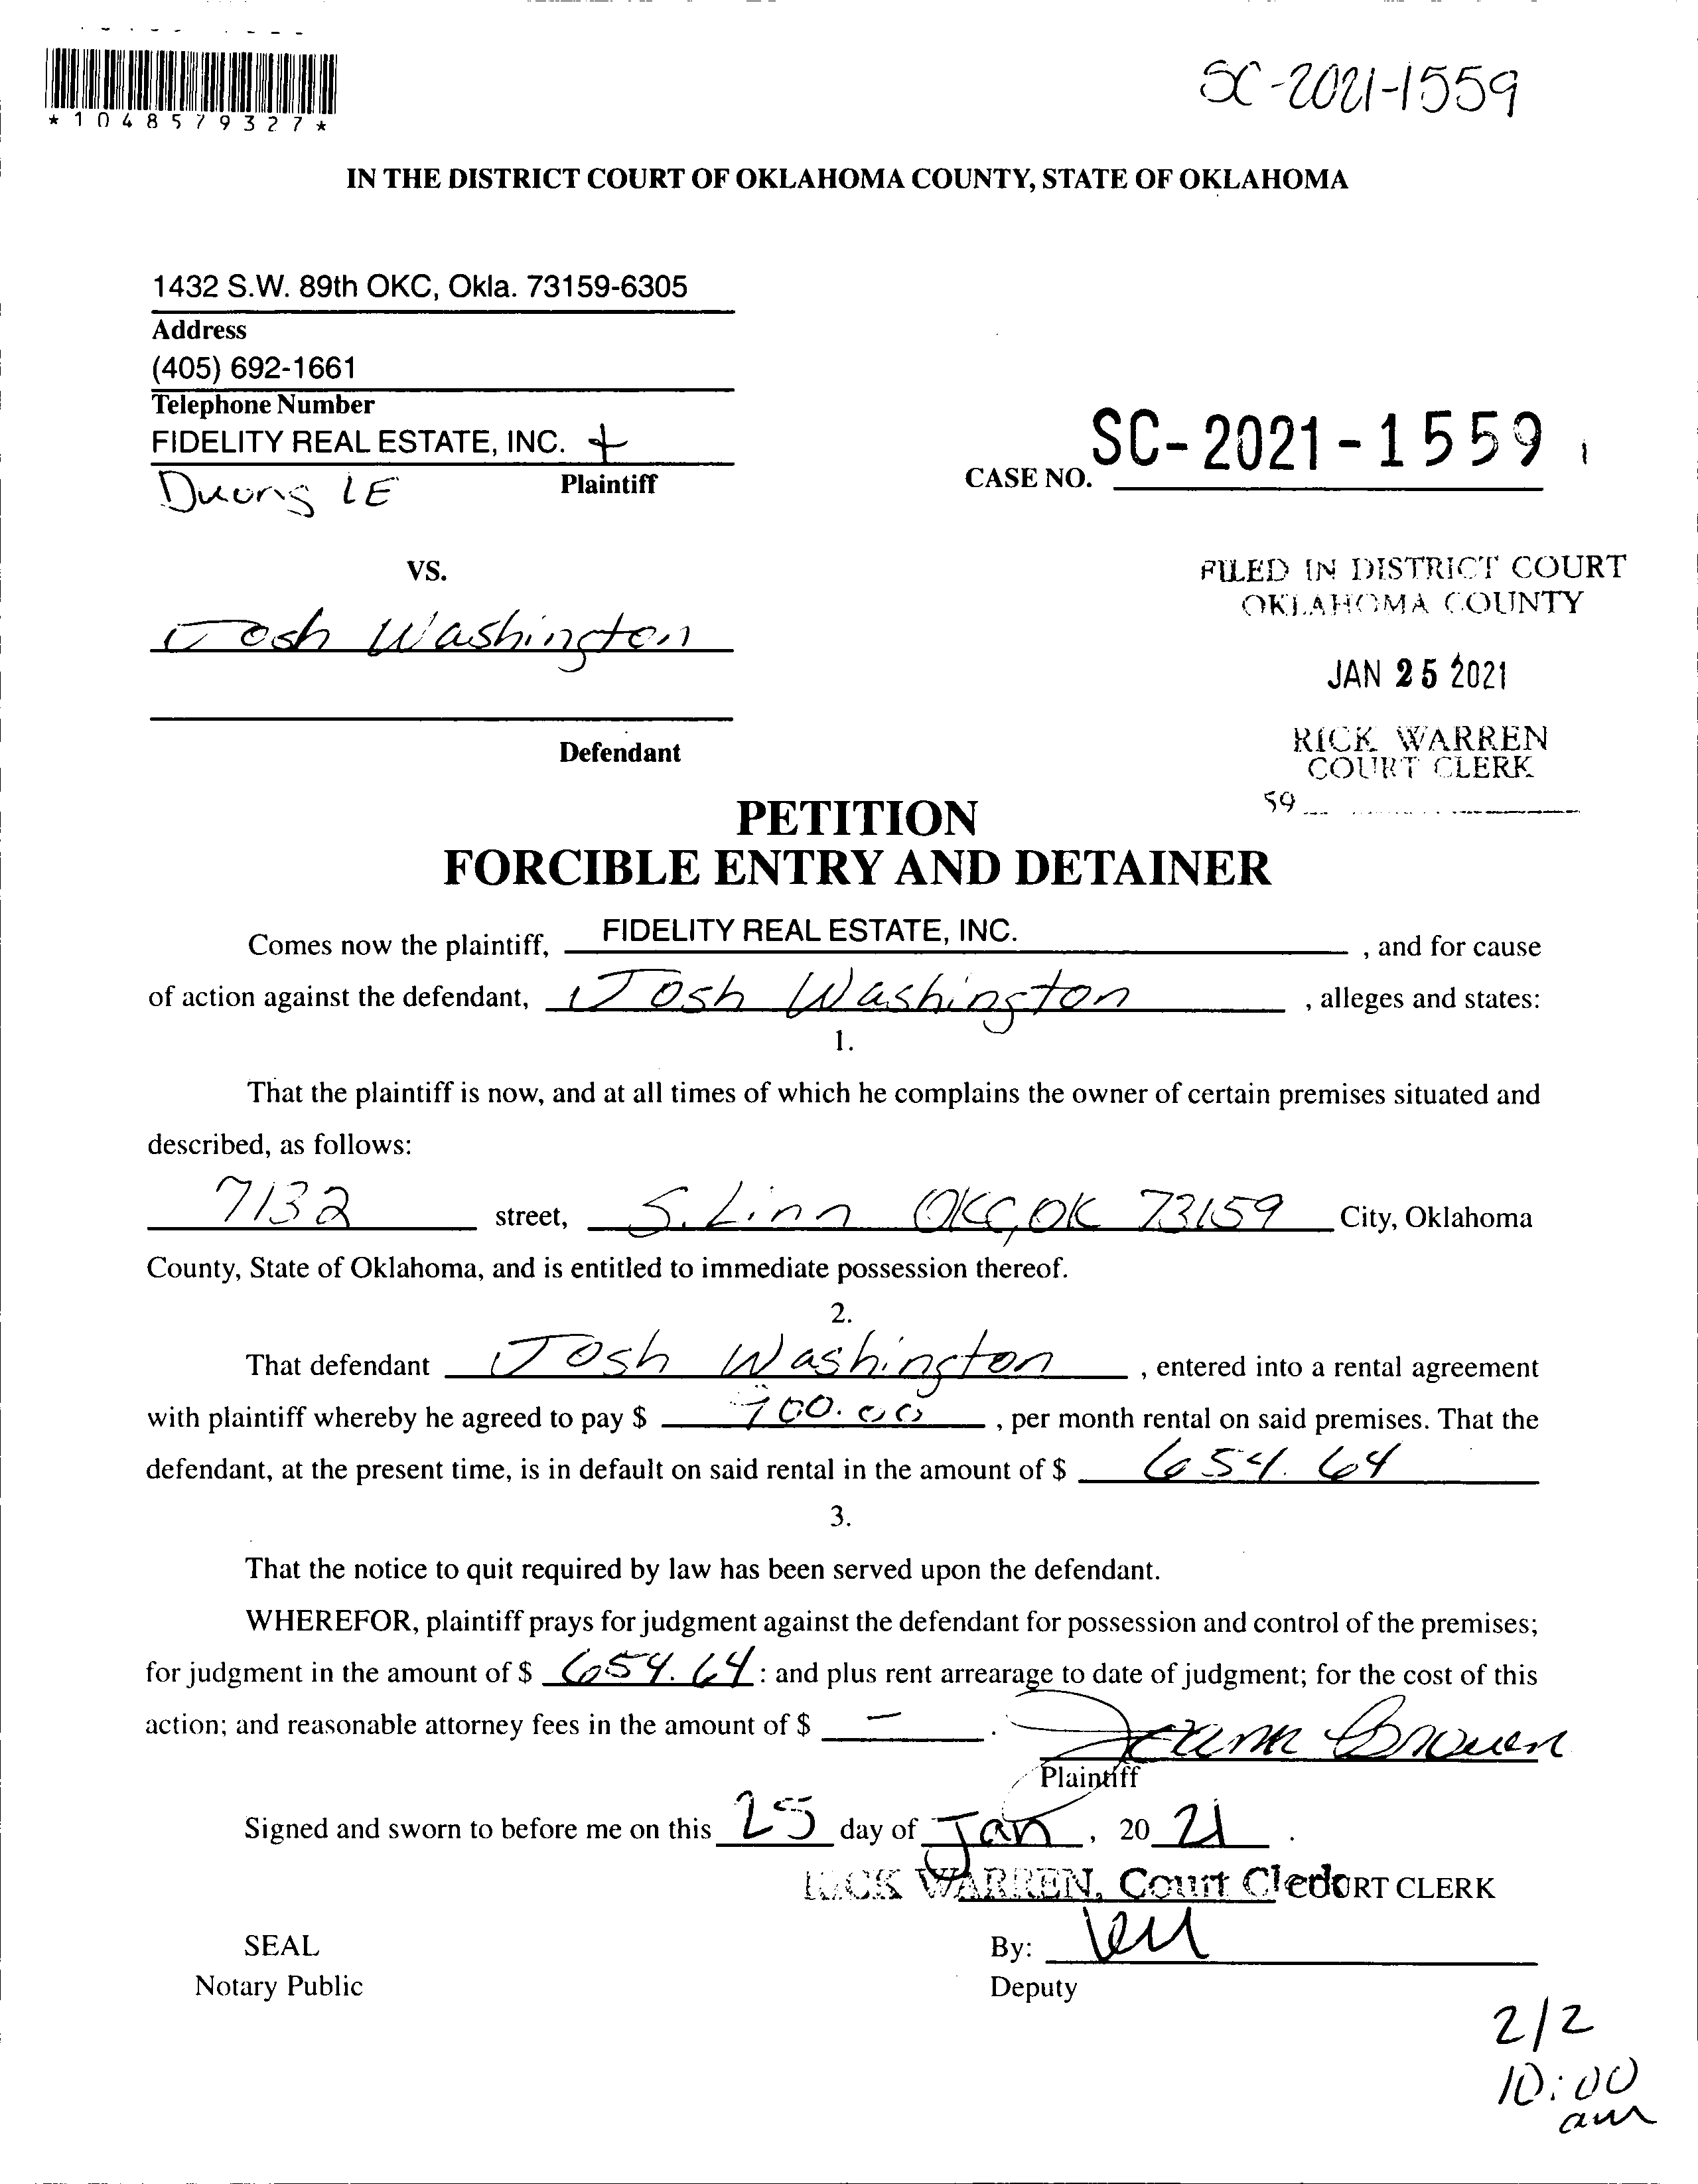 *1048579327*
SC-2021-1559
IN THE DISTRICT COURT OF OKLAHOMA COUNTY, STATE OF OKLAHOMA
1432 S.W. 89th OKC, Okla. 73159-6305
Address
(405) 692-1661
Telephone Number
FIDELITY REAL ESTATE, INC. +
Duong LE Plaintiff
CASE NO. SC-2021-1559
VS.
Josh Washington
Defendant
FILED IN DISTRICT COURT
OKLAHOMA COUNTY
JAN 25 2021
RICK WARREN
COURT CLERK
59
PETITION
FORCIBLE ENTRY AND DETAINER
Comes now the plaintiff, FIDELITY REAL ESTATE, INC. , and for cause
of action against the defendant, Josh Washington , alleges and states:
1.
That the plaintiff is now, and at all times of which he complains the owner of certain premises situated and
described, as follows:
7132 street, S. Linn OKC, OK 73159 City, Oklahoma
County, State of Oklahoma, and is entitled to immediate possession thereof.
2.
That defendant Josh Washington , entered into a rental agreement
with plaintiff whereby he agreed to pay $ 700.00 , per month rental on said premises. That the
defendant, at the present time, is in default on said rental in the amount of $ 654.64
3.
That the notice to quit required by law has been served upon the defendant.
WHEREFOR, plaintiff prays for judgment against the defendant for possession and control of the premises;
for judgment in the amount of $ 654.64 : and plus rent arrearage to date of judgment; for the cost of this
action; and reasonable attorney fees in the amount of $ — .
Brown
Plaintiff
Signed and sworn to before me on this 25 day of Jan , 20 21 .
RICK WARREN, Court Clerk COURT CLERK
SEAL
By:
Notary Public
Deputy
2/2
10:00
am